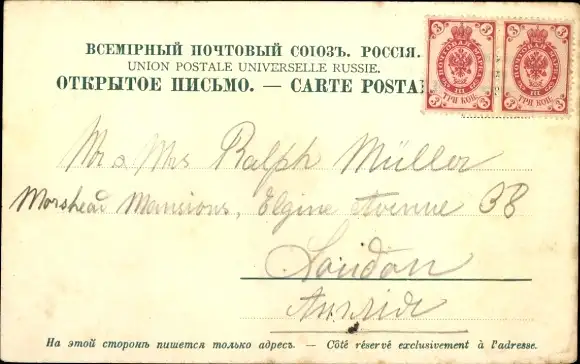 ВСЕМІРНЫЙ ПОЧТОВЫЙ СОЮЗЪ. РОССІЯ.
UNION POSTALE UNIVERSELLE RUSSIE.
ОТКРЫТОЕ ПИСЬМО. — CARTE POSTA
3 3
ПОЧТОВАЯ МАРКА
3 ТРИ КОП. 3
3 3
ПОЧТОВАЯ МАРКА
3 ТРИ КОП. 3
Mr a Mrs Ralph Müller
Morshead Mansions, Elgine Avenue 38
London
Англія
На этой сторонѣ пишется только адресъ. — Côté réservé exclusivement à l'adresse.